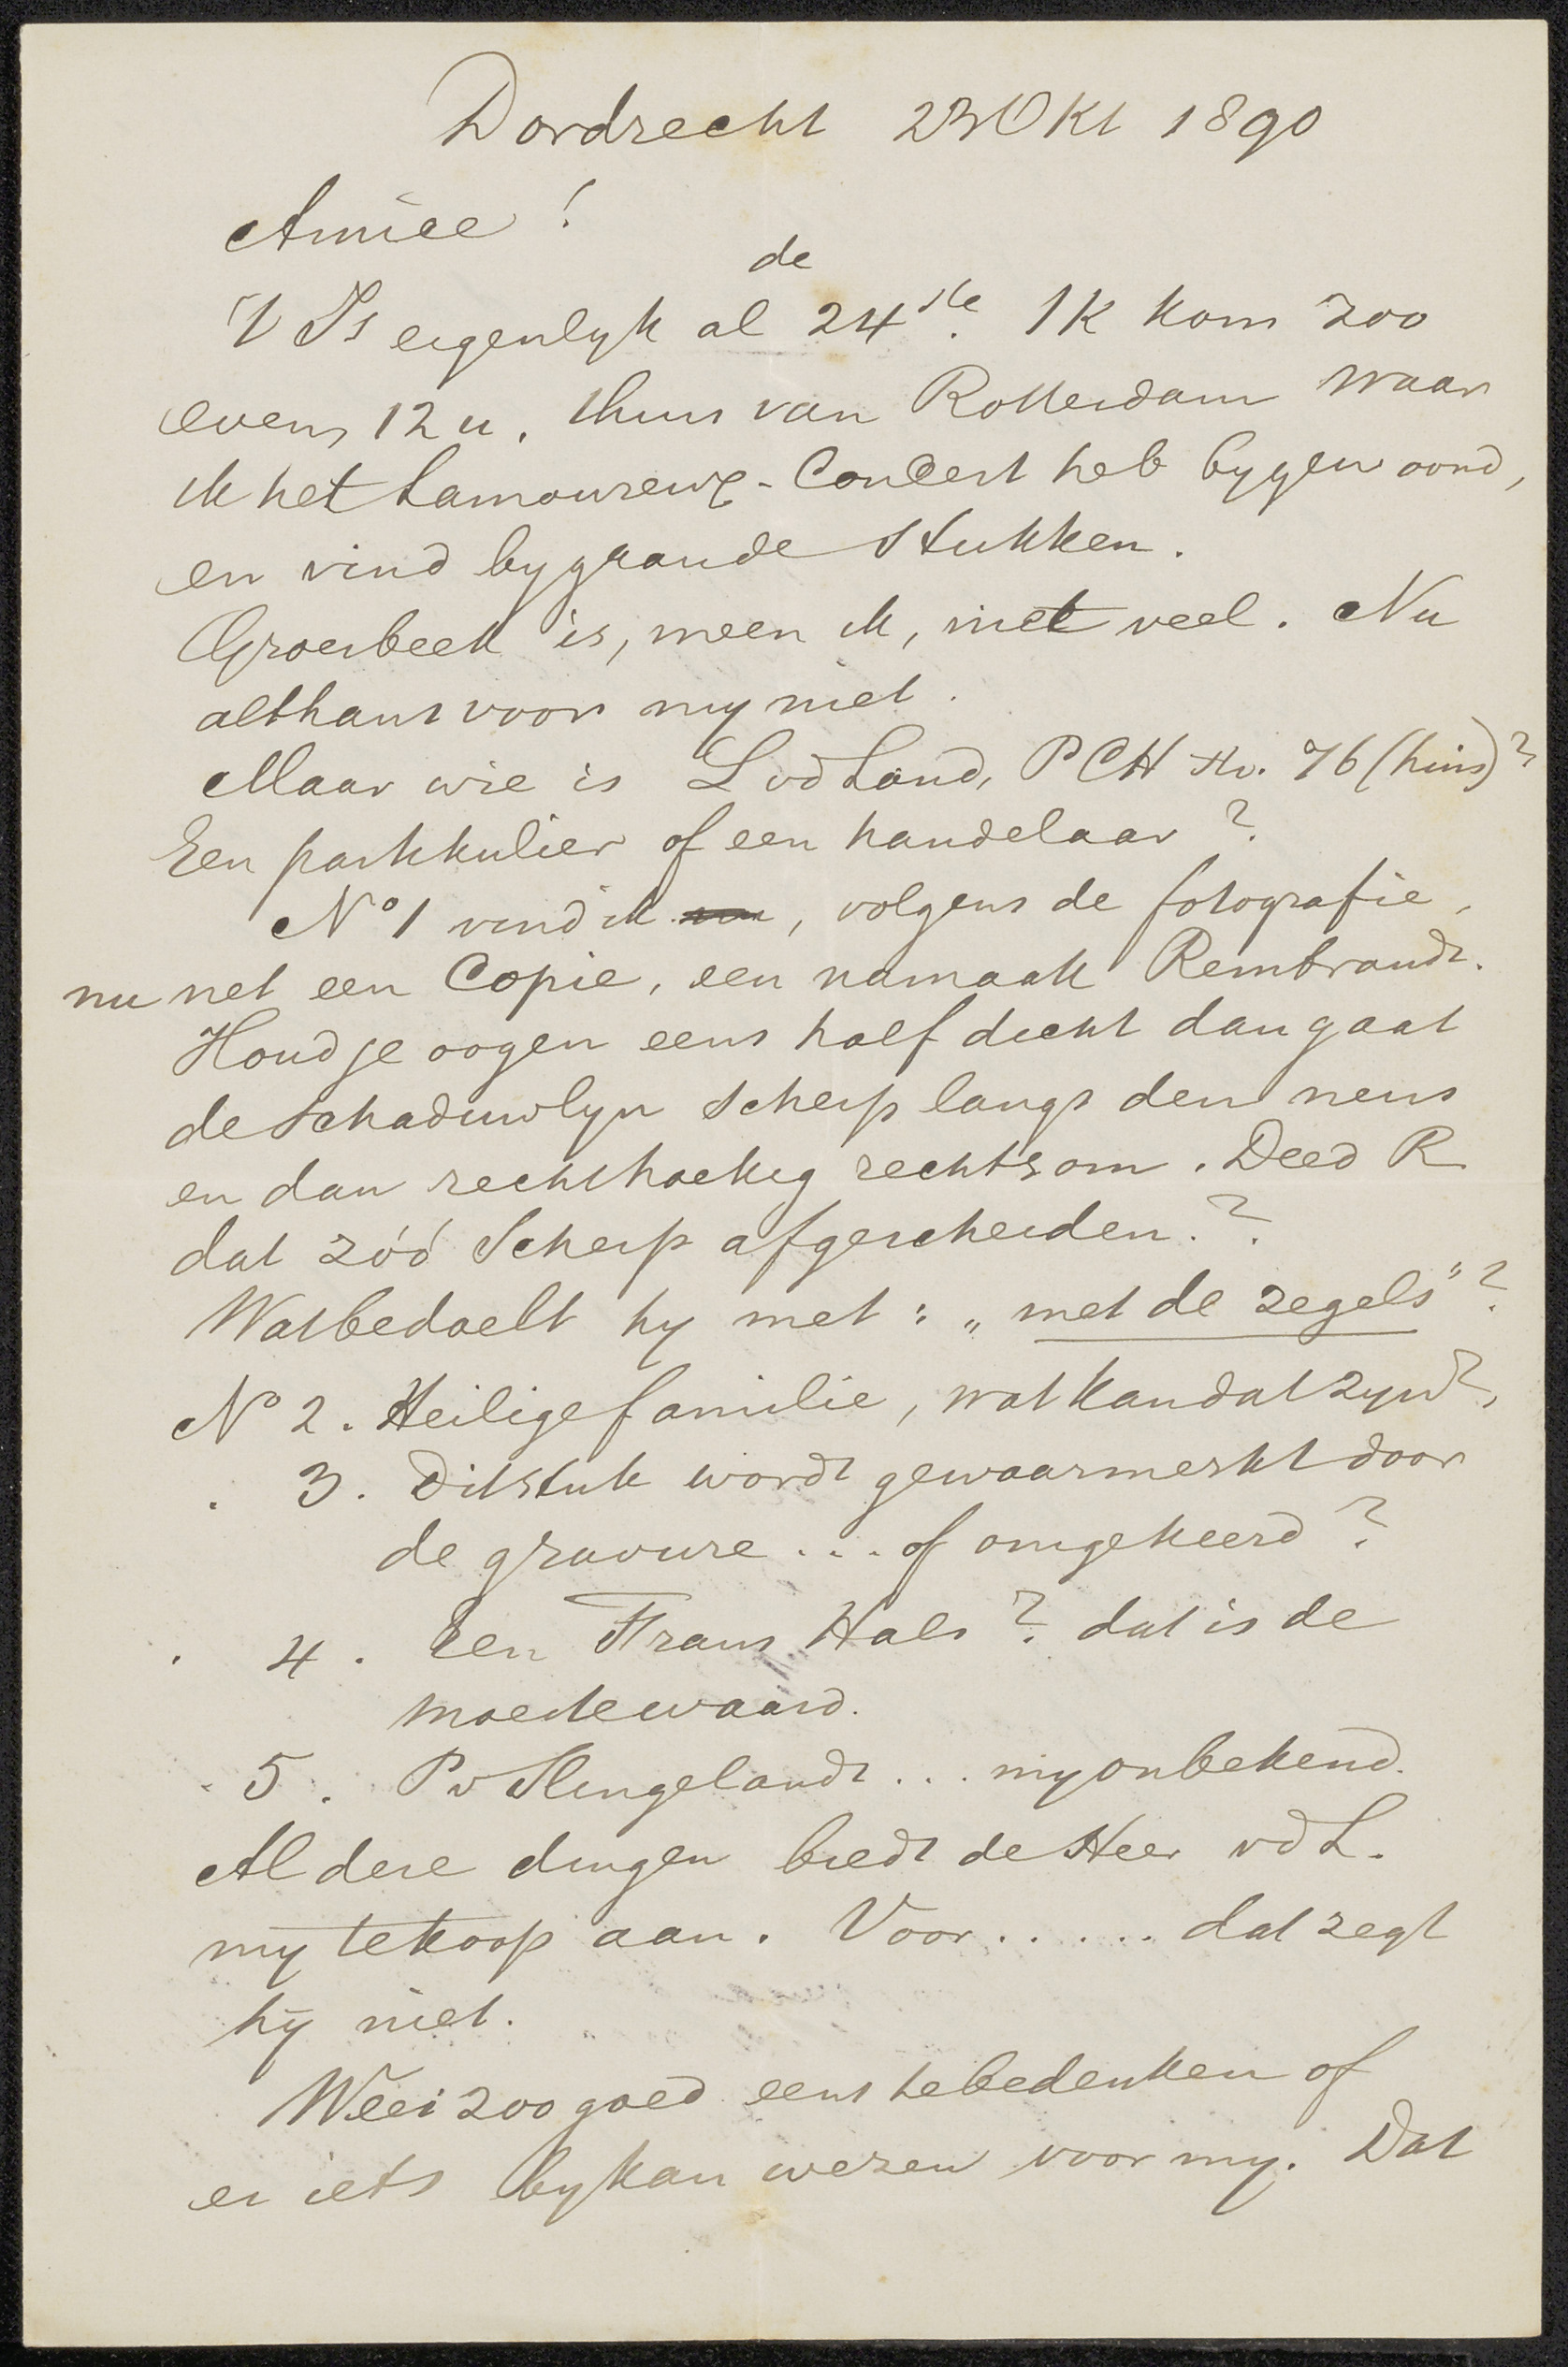 Dordrecht 23 Okt 1890
Amice!
de
't Is eigenlyk al 24ste. Ik kom zoo
even, 12 u. thuis van Rotterdam waar
ik het Lamoureux-Concert heb bygewoond,
en vind bygaande stukken.
Groesbeek is, meen ik, niet veel. Nu
althans voor my niet.
Maar wie is L vd Land, PCH str. 76 (huis)?
Een partikulier of een handelaar?
No 1 vind ik, volgens de fotografie,
nu net een Copie, een namaak Rembrandt.
Houd je oogen eens half dicht dan gaat
de schaduwlyn scherp langs den neus
en dan rechthoekig rechtsom. Deed R
dat zóó scherp afgescheiden?
Wat bedoelt hy met: „met de zegels"?
No 2. Heilige familie, wat kan dat zyn?
. 3. Dit stuk wordt gewaarmerkt door
de gravure ... of omgekeerd?
. 4. Een Frans Hals? dat is de
moeite waard.
. 5. P v Slingelandt ... my onbekend.
Al deze dingen biedt de Heer vd L.
my te koop aan. Voor ...... dat zegt
hy niet.
Wees zoo goed eens te bedenken of
er iets by kan wezen voor my. Dat